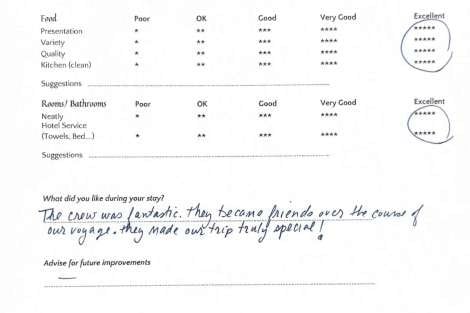 Food Poor OK Good Very Good Excellent
Presentation * ** *** **** *****
Variety * ** *** **** *****
Quality * ** *** **** *****
Kitchen (clean) * ** *** **** *****
Suggestions
Rooms/ Bathrooms Poor OK Good Very Good Excellent
Neatly * ** *** **** *****
Hotel Service
(Towels, Bed...) * ** *** **** *****
Suggestions
What did you like during your stay?
The crew was fantastic. they became friends over the course of
our voyage. they made our trip truly special!
Advise for future improvements
—